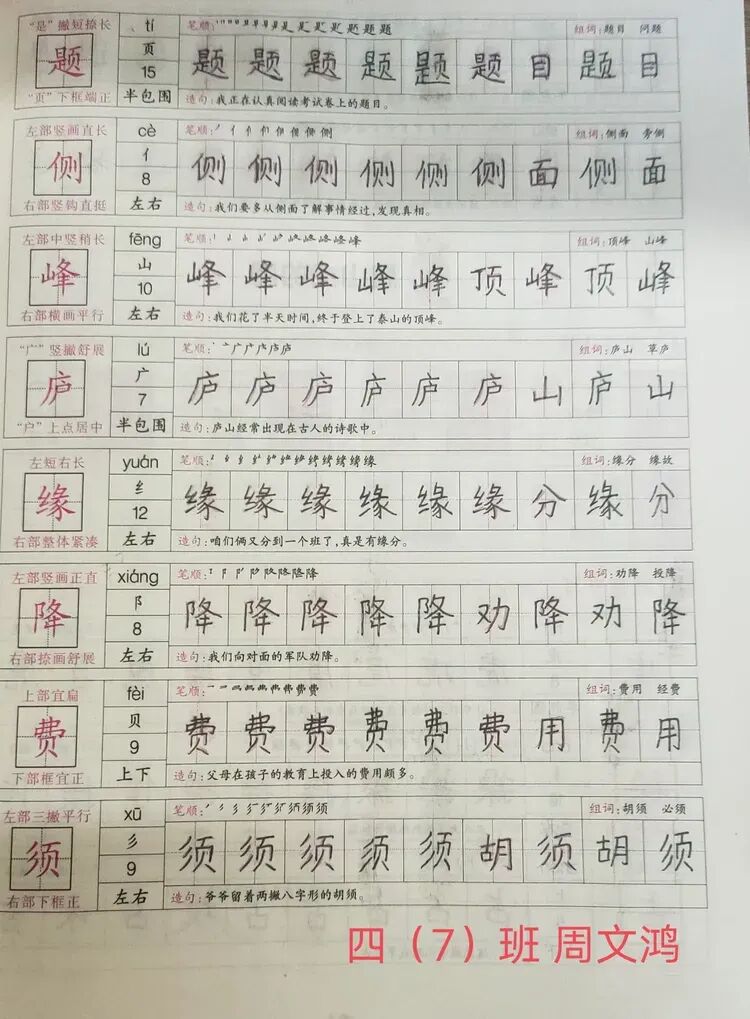 “是”撇短捺长 tí 笔顺： 组词：题目 问题
题 页 15 题 题 题 题 题 题 目 题 目
“页”下框端正 半包围 造句：我正在认真阅读考试卷上的题目。
左部竖画直长 cè 笔顺： 组词：侧面 旁侧
侧 亻 8 侧 侧 侧 侧 侧 侧 面 侧 面
右部竖钩直挺 左右 造句：我们要多从侧面了解事情经过，发现真相。
左部中竖稍长 fēng 笔顺： 组词：顶峰 山峰
峰 山 10 峰 峰 峰 峰 峰 顶 峰 顶 峰
右部横画平行 左右 造句：我们花了半天时间，终于登上了泰山的顶峰。
“广”竖撇舒展 lú 笔顺： 组词：庐山 草庐
庐 广 7 庐 庐 庐 庐 庐 庐 山 庐 山
“户”上点居中 半包围 造句：庐山经常出现在古人的诗歌中。
左短右长 yuán 笔顺： 组词：缘分 缘故
缘 纟 12 缘 缘 缘 缘 缘 缘 分 缘 分
右部整体紧凑 左右 造句：咱们俩又分到一个班了，真是有缘分。
左部竖画正直 xiáng 笔顺： 组词：劝降 投降
降 阝 8 降 降 降 降 降 劝 降 劝 降
右部捺画舒展 左右 造句：我们向对面的军队劝降。
上部宜扁 fèi 笔顺： 组词：费用 经费
费 贝 9 费 费 费 费 费 费 用 费 用
下部框宜正 上下 造句：父母在孩子的教育上投入的费用颇多。
左部三撇平行 xū 笔顺： 组词：胡须 必须
须 彡 9 须 须 须 须 须 胡 须 胡 须
右部下框正 左右 造句：爷爷留着两撇八字形的胡须。
四（7）班 周文鸿